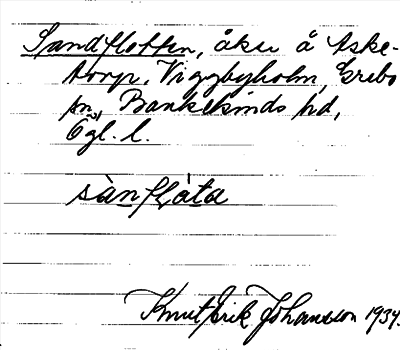 Sandflotten, åker å Aske-
torp, Viggbyholm, Grebo
sn, Bankekinds hd,
Ögl. l.
sànflàta
Knut Erik Johansson 1934.